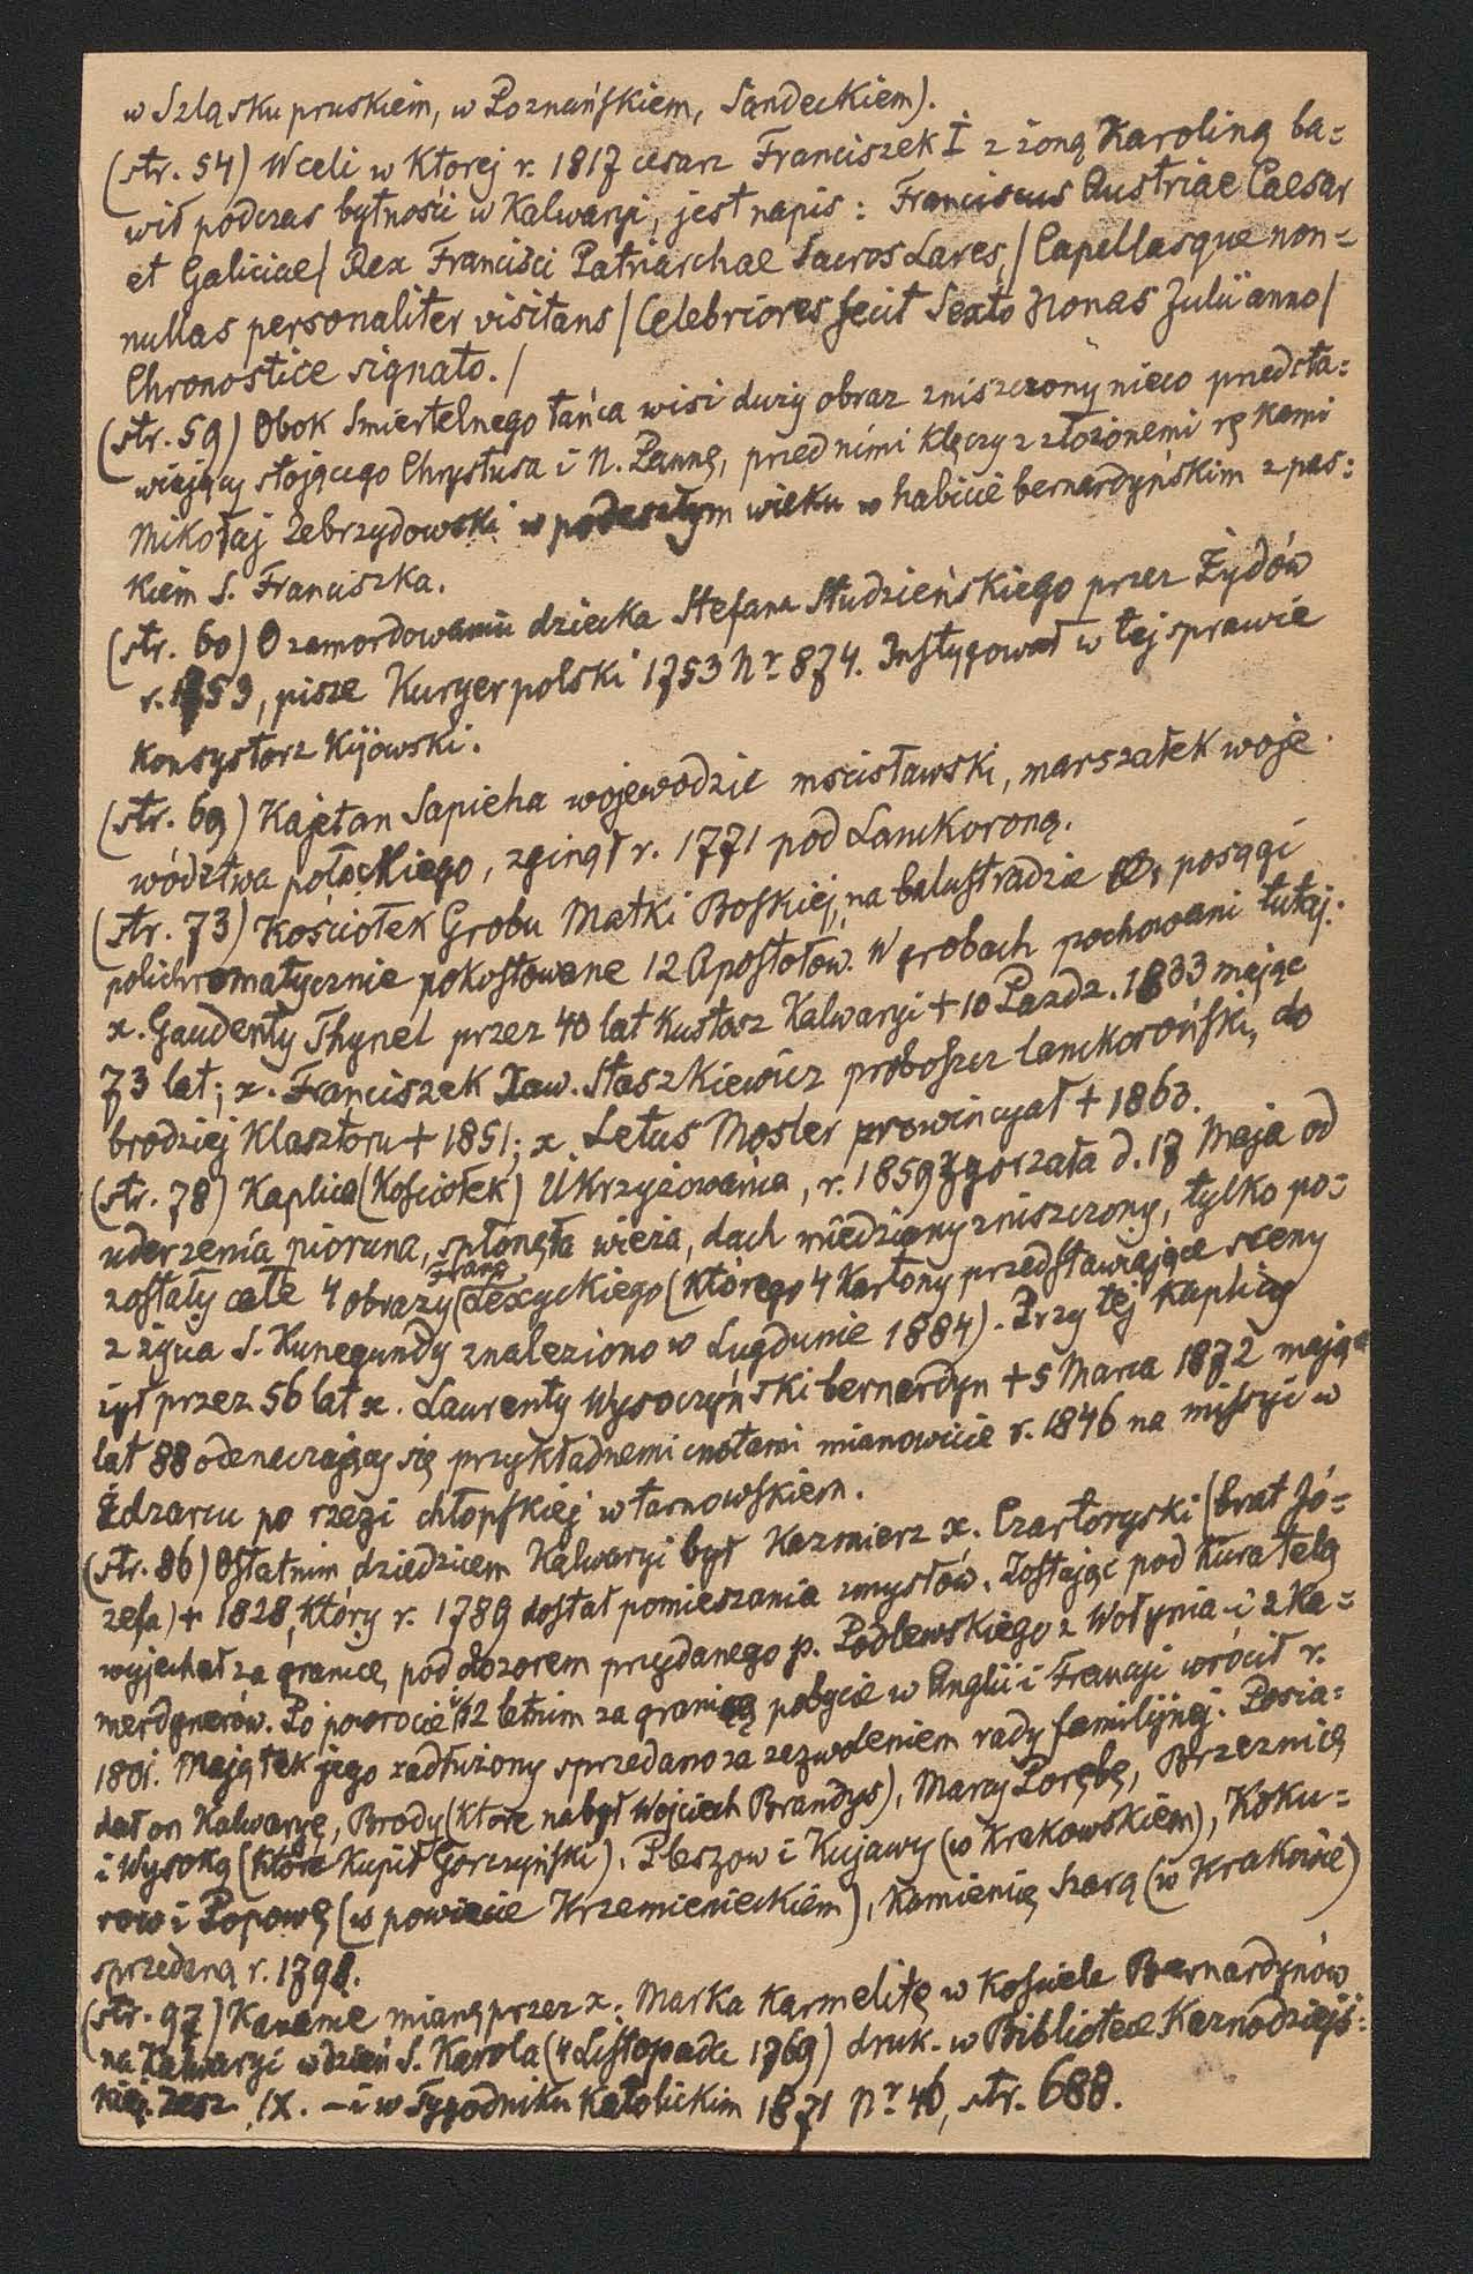 w Szląsku pruskiem, w Poznańskiem, Sandeckiem).
(str. 54) W celi w Której r. 1817 cesarz Franciszek I z żoną Karoliną ba=
wił podczas bytności w Kalwaryi, jest napis: Franciscus Austriae Caesar
et Galiciae/ Rex Francisci Patriarchae Sacros Lares,/ Capellasque non=
nullas personaliter visitans/ Celebriores fecit Sexto Nonas Julii anno/
Chronostice signato./
(str. 59) Obok Smiertelnego tańca wisi duży obraz zniszczony nieco przedsta=
wiający stojącego Chrystusa i N. Pannę, przed nimi klęczy z złożonemi rękami
Mikołaj Zebrzydowski w podeszłym wieku w habicie bernardyńskim z pas=
kiem S. Franciszka.
(str. 60) O zamordowaniu dziecka Stefana Studzieńskiego przez Żydów
r. 1753, pisze Kuryer polski 1753 Nr 874. Instygował w tej sprawie
Konsystorz Kijowski.
(str. 69) Kajetan Sapieha wojewodzic mscisławski, marszałek woje
wództwa połockiego, zginął r. 1771 pod Lanckoroną.
(str. 73) Kościołek Grobu Matki Boskiej, na balustradzie posągi
polichromatycznie pokostowane 12 Apostołów. W grobach pochowani tutaj:
x. Gaudenty Thynel przez 40 lat Kustosz Kalwaryi + 10 Pazdz. 1833 mając
73 lat; x. Franciszek Xaw. Staszkiewicz proboszcz lanckoroński, do
brodziej Klasztoru + 1851; x. Letus Mosler prowincyał + 1863.
(str. 78) Kaplica (Kościołek) Ukrzyżowania, r. 1859 zgorzała d. 17 Maja od
uderzenia pioruna, spłonęła wieża, dach miedziany zniszczony, tylko po=
zostały całe 4 obrazy Franc Lexyckiego (którego 4 Kartony przedstawiające sceny
z życia S. Kunegundy znaleziono w Lugdunie 1884). Przy tej kaplicy
żył przez 56 lat x. Laurenty Wysoczyński bernardyn + 5 Marca 1872 mając
lat 88 odznaczający się przykładnemi cnotami mianowicie r. 1846 na missyi w
Zdzarcu po rzezi chłopskiej w tarnowskiem.
(str. 86) Ostatnim dziedzicem Kalwaryi był Kazmierz x. Czartoryski (brat Jó=
zefa) + 1828, Który r. 1789 dostał pomieszania zmysłów. Zostając pod kuratelą
wyjechał za granicę, pod dozorem przydanego p. Podlewskiego z Wołynia i 2 Ka=
merdynerów. Po powrocie 12 letnim za granicą pobycie w Anglii i Francyi wrócił r.
1801. Majątek jego zadłużony sprzedano za zezwoleniem rady familijnej. Posia=
dał on Kalwaryę, Brody (które nabył Wojciech Brandys), Marcy Porębę, Brzeznicę
i Wysoką (które Kupił Gorczyński), Pleszow i Kujawy (w Krakowskiem), Koku=
row i Popowę (w powiecie Krzemienieckiem), Kamienicę szarą (w Krakowie)
sprzedaną r. 1798.
(str. 97) Kazanie miane przez x. Marka Karmelitę w Kościele Bernardynów
na Kalwaryi w dzień S. Karola (4 Listopada 1769) druk. w Bibliotece Kaznodziejs=
kiej. Zesz. IX. – i w Tygodniku Katolickim 1871 Nr 46, str. 688.